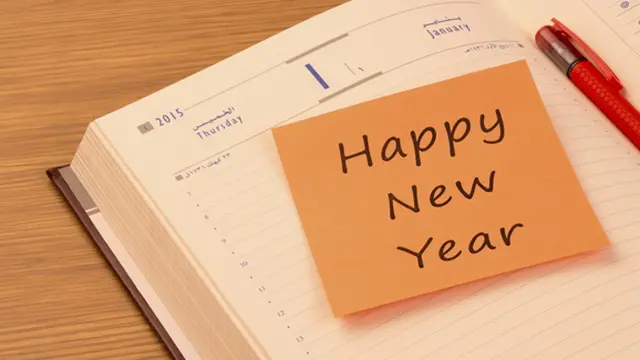 ينـــاير
January
1 ١
2015
الخميس
Thursday
Happy
New
Year
7
8
9
10
11
12
13